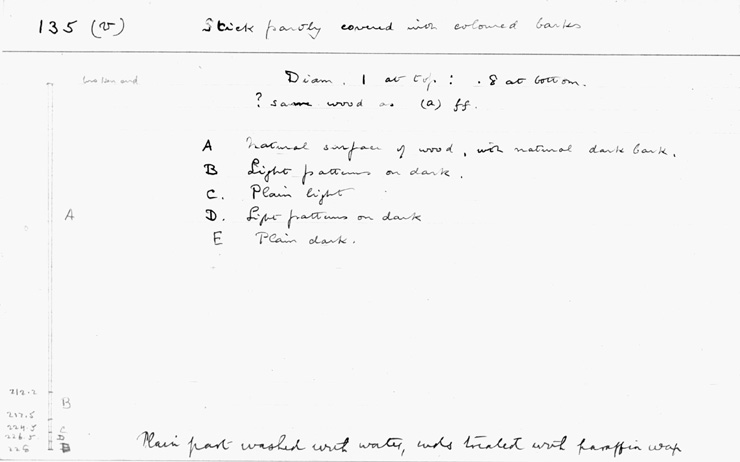 135 (v) Stick partly covered with coloured barks
broken end
Diam. 1 at top : .8 at bottom.
? same wood as (a) ff.
A Natural surface of wood, with natural dark bark.
B Light patterns on dark.
C. Plain light
D. Light patterns on dark
E Plain dark.
A
212.2
B
217.5
224.5 C
226.5 D
228
Plain part washed with water, ends treated with paraffin wax